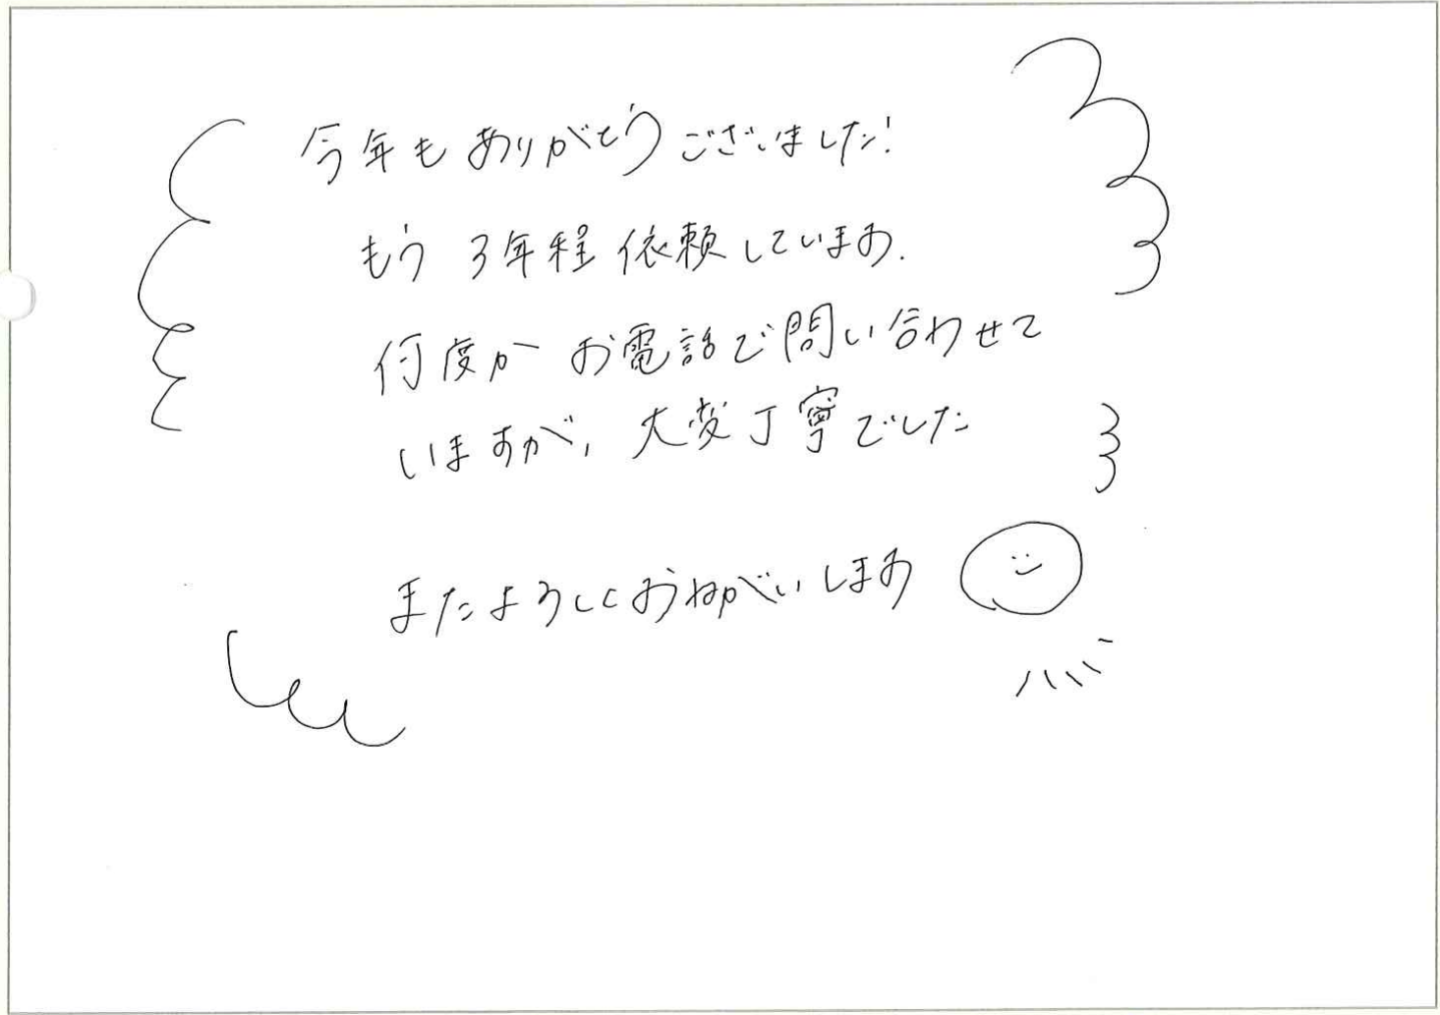 今年もありがとうございました!
もう3年程依頼しています.
何度かお電話で問い合わせて
いますが、大変丁寧でした
またよろしくおねがいします